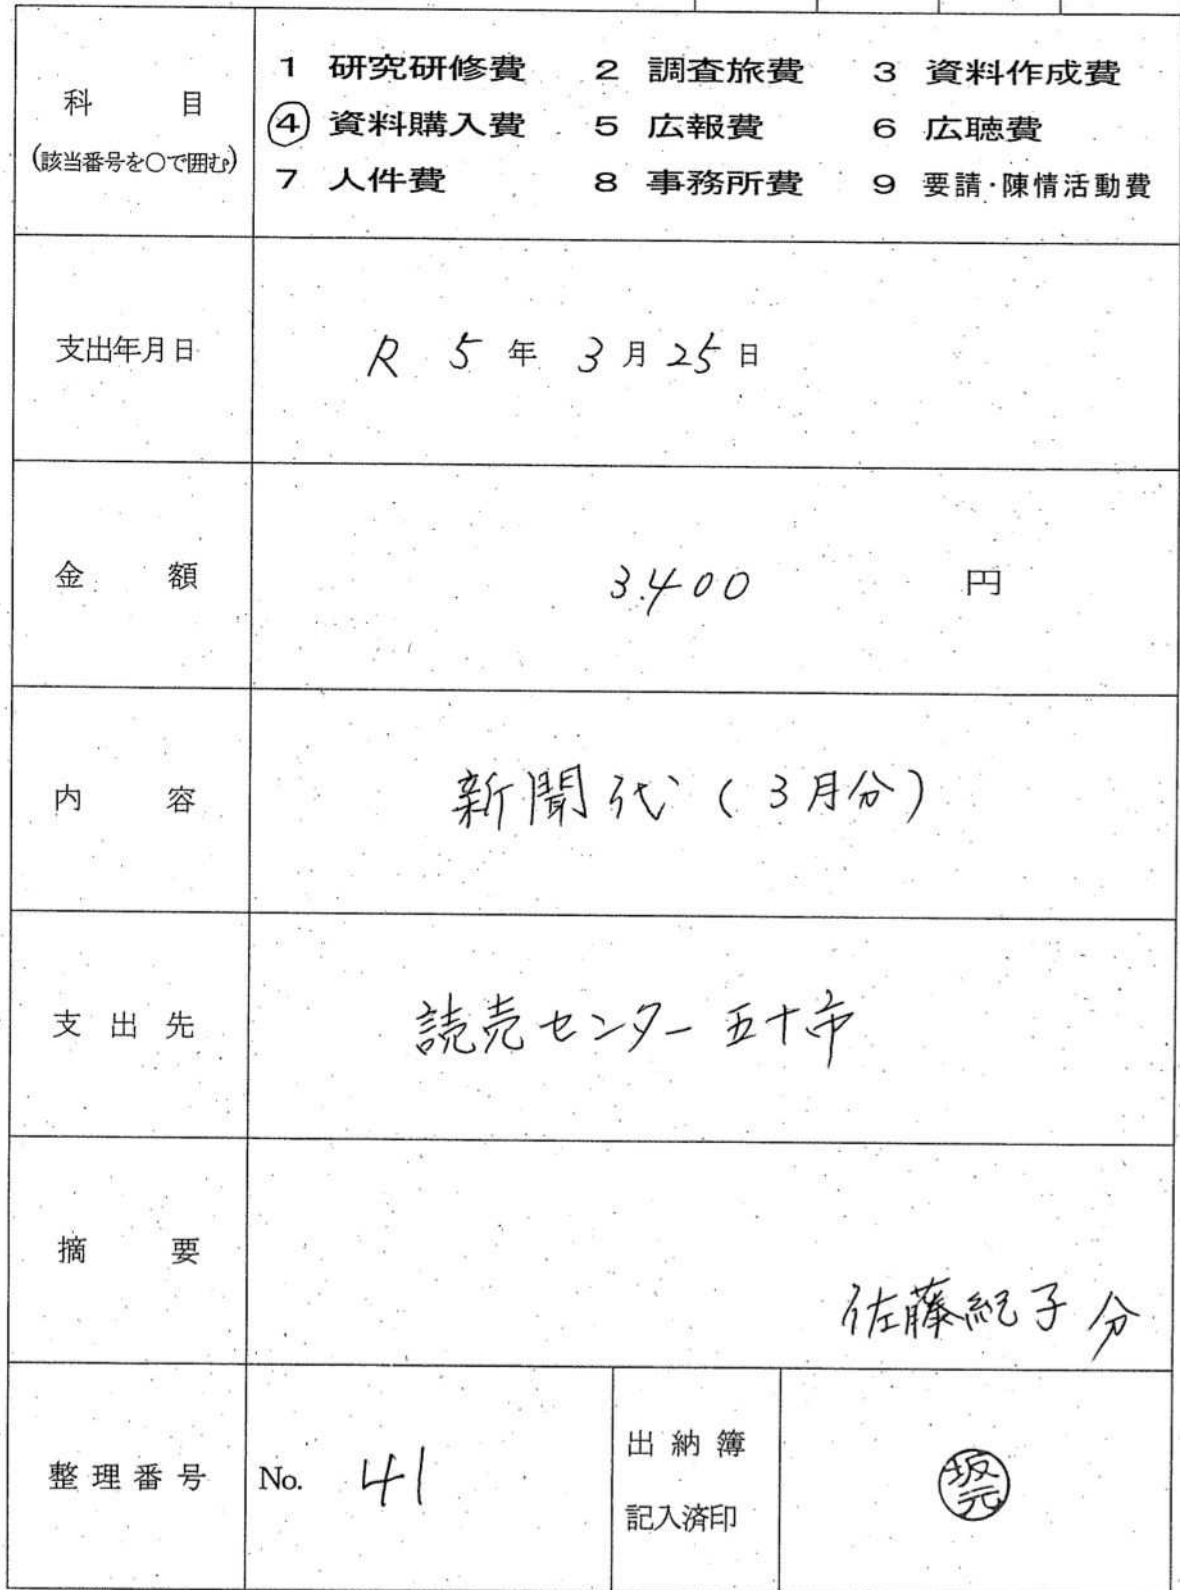 科目
(該当番号を○で囲む)
1 研究研修費 2 調査旅費 3 資料作成費
④ 資料購入費 5 広報費 6 広聴費
7 人件費 8 事務所費 9 要請・陳情活動費
支出年月日 R 5 年 3 月 25 日
金額 3.400 円
内容 新聞代(3月分)
支出先 読売センター五十市
摘要 佐藤紀子分
整理番号 No. 41
出納簿
記入済印
坂元